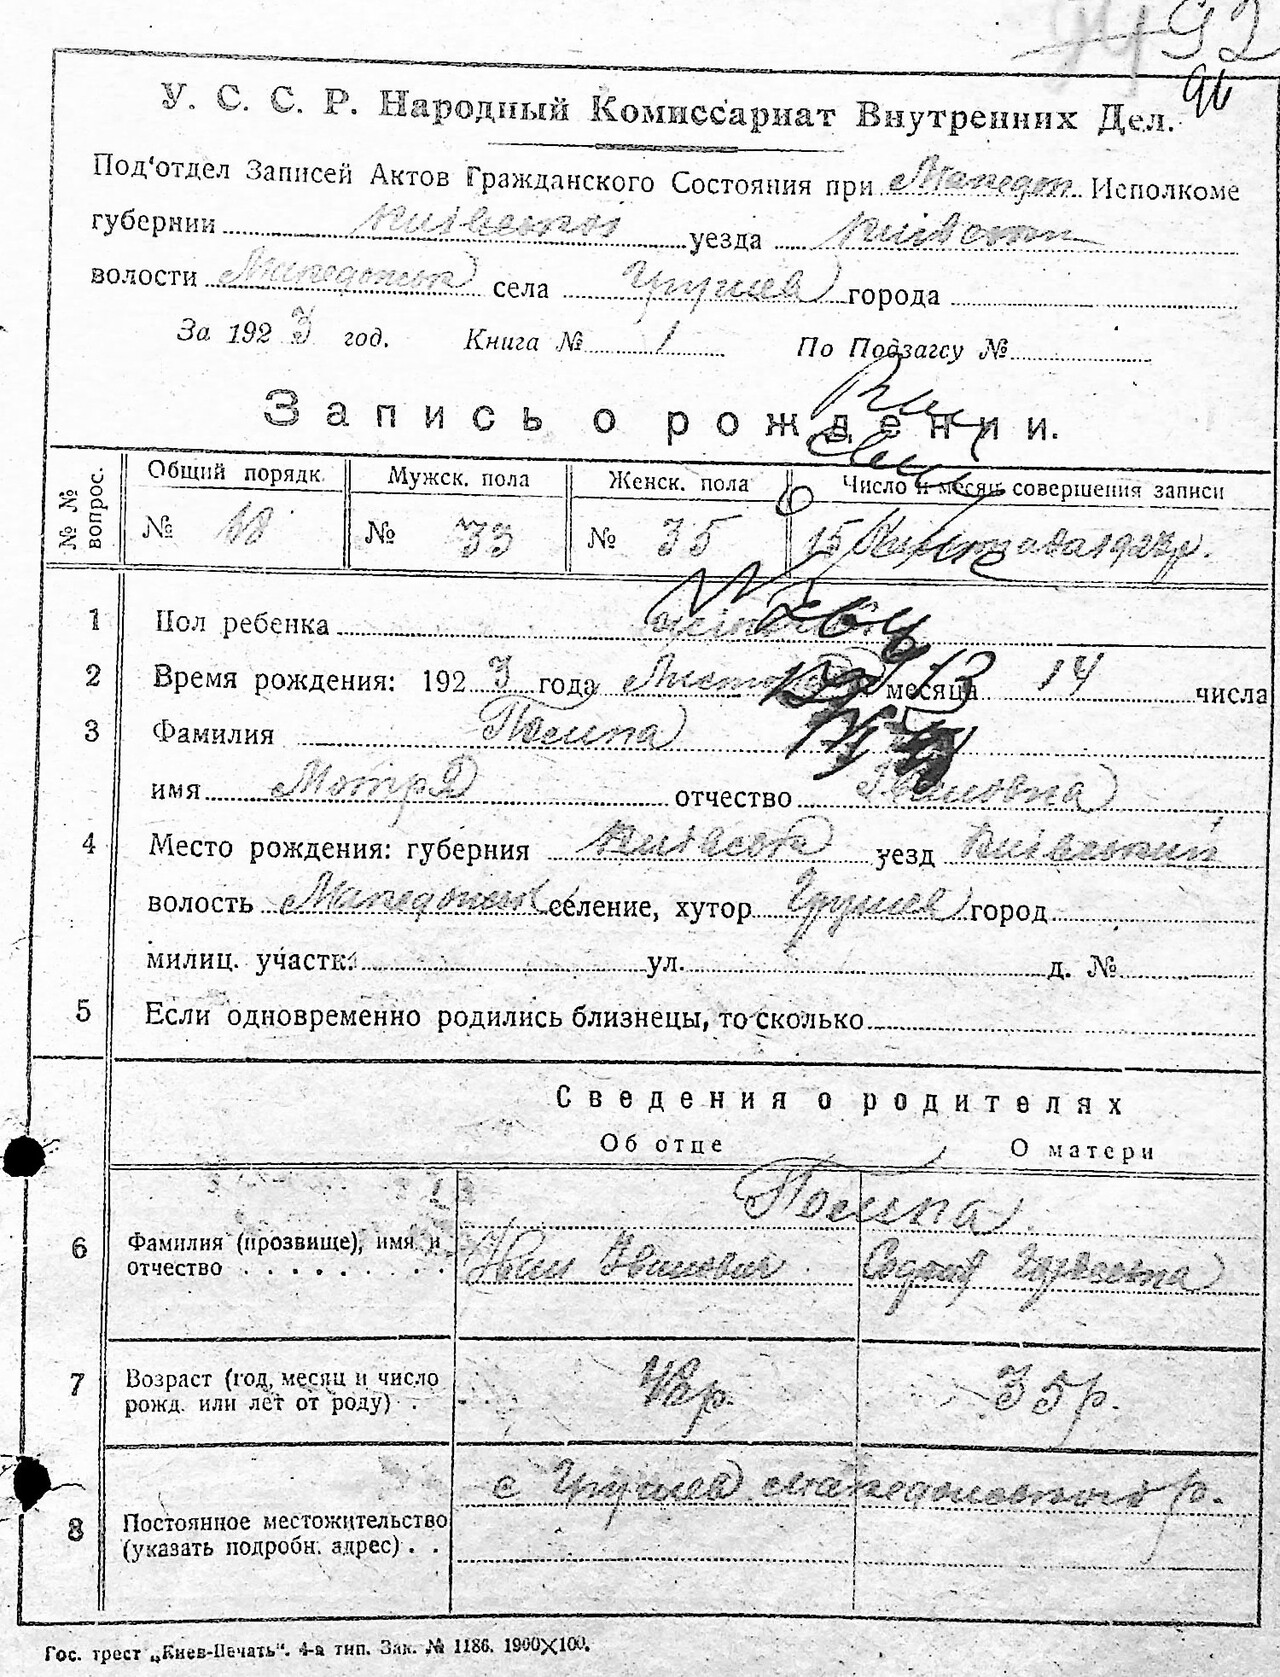 92
96
У. С. С. Р. Народный Комиссариат Внутренних Дел.
Под'отдел Записей Актов Гражданского Состояния при Македон Исполкоме
губернии Київської уезда Київськ
волости Македонськ села Грушев города
За 1923 год. Книга № 1 По Подзагсу №
Запись о рождении.
№ № вопрос. Общий порядк. Мужск. пола Женск. пола Число и месяц совершения записи
№ № 33 № 35 15 Листопада 1923 р.
1 Пол ребенка
2 Время рождения: 1923 года месяца 14 числа
3 Фамилия
имя Мотря отчество Івановна
4 Место рождения: губерния Київська уезд Київський
волость Македонськ селение, хутор Грушев город
милиц. участк. ул. д. №
5 Если одновременно родились близнецы, то сколько
Сведения о родителях
Об отце О матери
6 Фамилия (прозвище), имя и отчество Иван Іванович
7 Возраст (год, месяц и число рожд. или лет от роду) 35 р.
8 Постоянное местожительство (указать подробн. адрес) с Грушев Македонського р.
Гос. трест „Киев-Печать“. 4-я тип. Зак. № 1186. 1900×100.